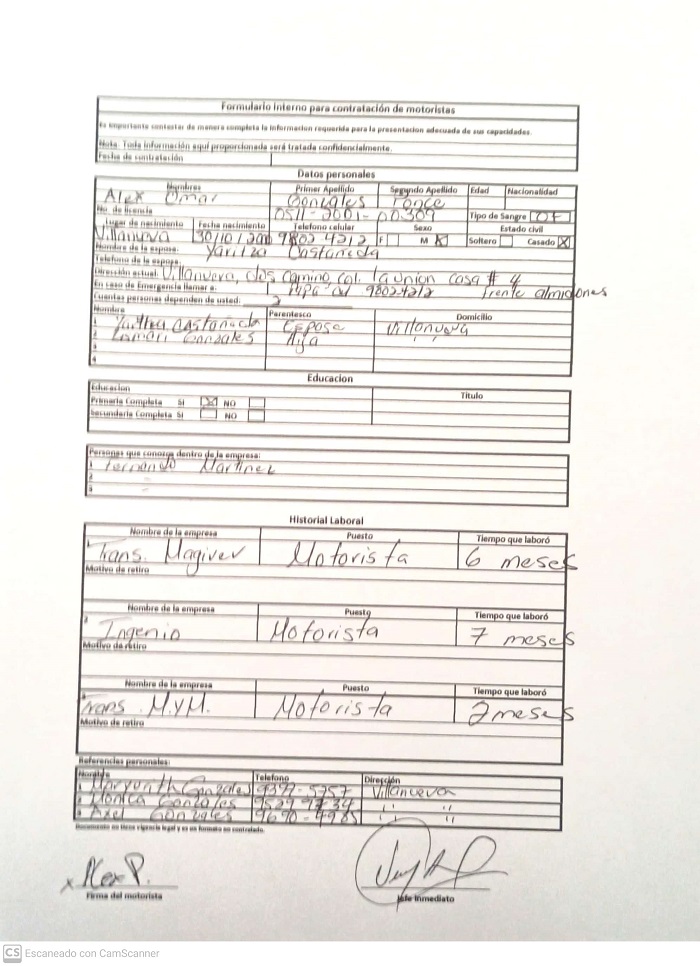 Formulario Interno para contratación de motoristas
Es importante contestar de manera completa la informacion requerida para la presentacion adecuada de sus capacidades.
Nota: Toda información aquí proporcionada será tratada confidencialmente.
Fecha de contratación
Datos personales
Nombres Primer Apellido Segundo Apellido Edad Nacionalidad
Alex Omar Gonzales Ponce
No. de licencia 0511-2001-00309 Tipo de Sangre O+
Lugar de nacimiento Fecha nacimiento Telefono celular Sexo Estado civil
Villanueva 30/10/200 9802 4212 F M X Soltero Casado X
Nombre de la esposa: Yaritza Castañeda
Telefono de la esposa
Dirección actual: Villanueva, dos camino col. la union casa # 4
En caso de Emergencia llamar a: 98024212 frente almidones
Cuentas personas dependen de usted: 2
Nombre Parentesco Domicilio
1 Castañeda Esposa Villanueva
2 Gonzales Hija " "
3
4
Educacion
Educacion Titulo
Primaria Completa SI X NO
Secundaria Completa SI NO
Personas que conozca dentro de la empresa:
1 Fernando Martinez
2
3
Historial Laboral
Nombre de la empresa Puesto Tiempo que laboró
1 Trans. Magiver Motorista 6 meses
Motivo de retiro
Nombre de la empresa Puesto Tiempo que laboró
2 Ingenio Motorista 7 meses
Motivo de retiro
Nombre de la empresa Puesto Tiempo que laboró
3 Trans M.yM. Motorista 2 meses
Motivo de retiro
Referencias personales:
Nombre Telefono Dirección
1 Gonzales 9397-5757 Villanueva
2 Monica Gonzales 9529 9734 " "
3 Axel Gonzales 9690-4985 " "
Documento no tiene vigencia legal y es un formato no controlado.
x Alex P.
Firma del motorista Jefe Inmediato
CS Escaneado con CamScanner